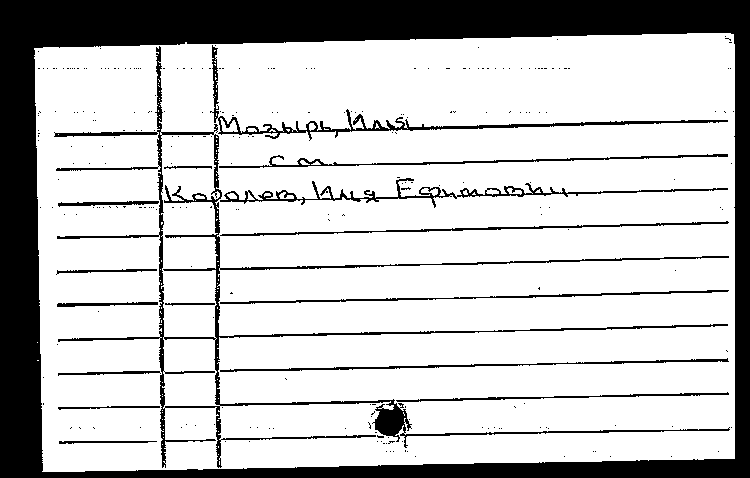 Мозырь, Илья.
см.
Королев, Илья Ефимович.